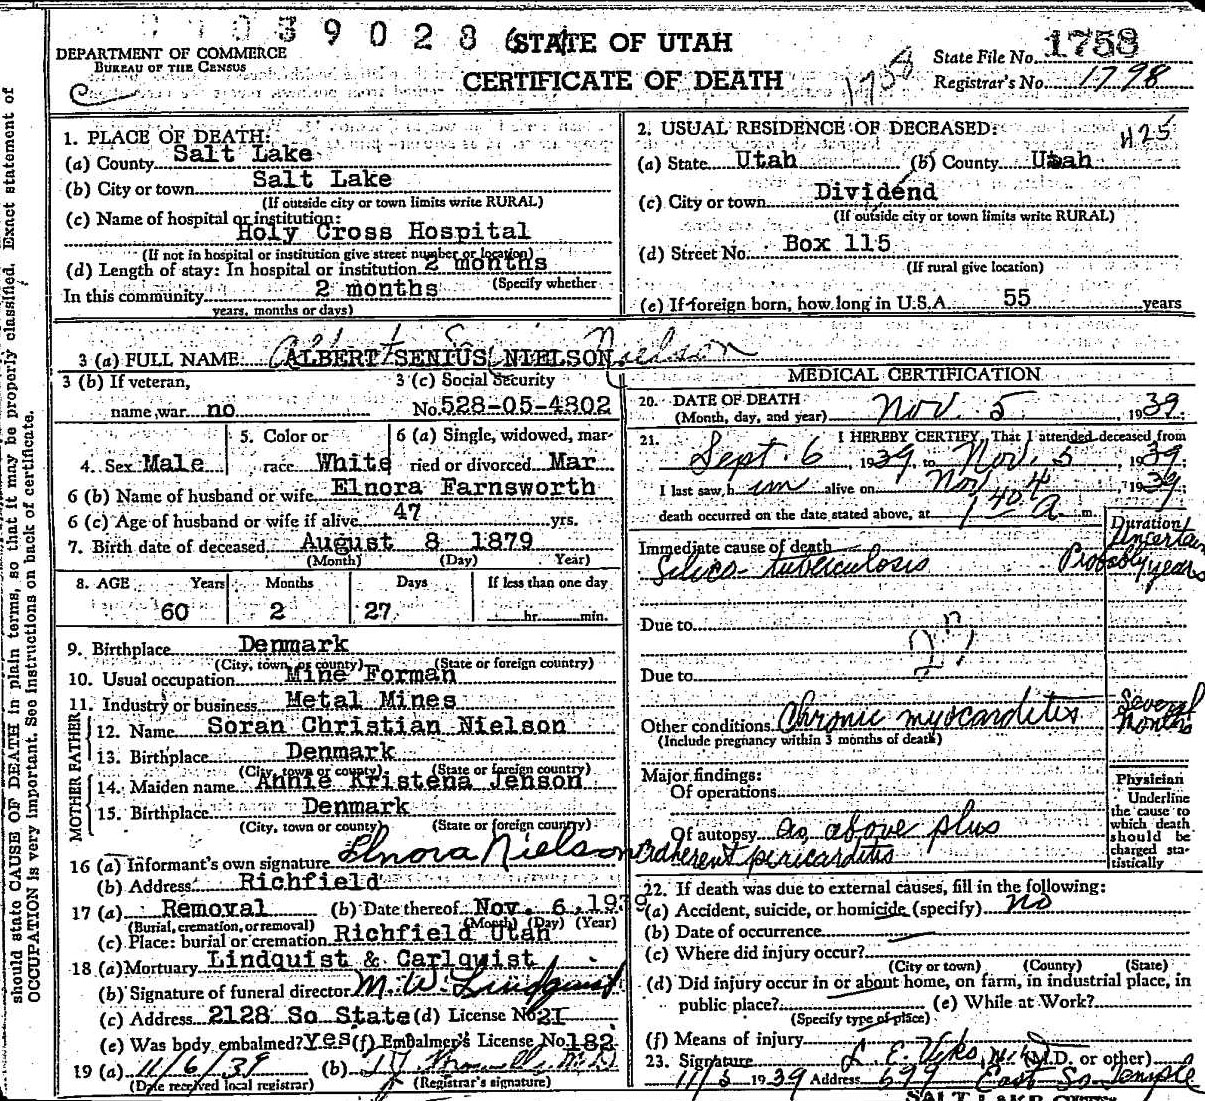 39028
STATE OF UTAH
CERTIFICATE OF DEATH
DEPARTMENT OF COMMERCE
BUREAU OF THE CENSUS
State File No. 1758
Registrar's No. 1798
1758
should state CAUSE OF DEATH in plain terms, so that it may be properly classified. Exact statement of
OCCUPATION is very important. See instructions on back of certificate.
1. PLACE OF DEATH:
(a) County Salt Lake
(b) City or town Salt Lake
(If outside city or town limits write RURAL)
(c) Name of hospital or institution:
Holy Cross Hospital
(If not in hospital or institution give street number or location)
(d) Length of stay: In hospital or institution 2 months
(Specify whether
In this community 2 months
years, months or days)
2. USUAL RESIDENCE OF DECEASED: H25
(a) State Utah (b) County Utah
(c) City or town Dividend
(If outside city or town limits write RURAL)
(d) Street No. Box 115
(If rural give location)
(e) If foreign born, how long in U.S.A. 55 years
3 (a) FULL NAME ALBERT SENIUS NIELSON Nielson
3 (b) If veteran,
name war no
3 (c) Social Security
No. 528-05-4802
4. Sex Male
5. Color or
race White
6 (a) Single, widowed, mar-
ried or divorced Mar
6 (b) Name of husband or wife Elnora Farnsworth
6 (c) Age of husband or wife if alive 47 yrs.
7. Birth date of deceased August 8 1879
(Month) (Day) Year)
8. AGE Years Months Days If less than one day
60 2 27 hr. min.
9. Birthplace Denmark
(City, town or county) (State or foreign country)
10. Usual occupation Mine Forman
11. Industry or business Metal Mines
FATHER
12. Name Soran Christian Nielson
13. Birthplace Denmark
(City, town or county) (State or foreign country)
MOTHER
14. Maiden name Annie Kristena Jenson
15. Birthplace Denmark
(City, town or county) (State or foreign country)
16 (a) Informant's own signature Elnora Nielson
(b) Address Richfield
17 (a) Removal (b) Date thereof Nov. 6, 1939
(Burial, cremation, or removal) (Month) (Day) (Year)
(c) Place: burial or cremation Richfield Utah
18 (a) Mortuary Lindquist & Carlquist
(b) Signature of funeral director M. W. Lindquist
(c) Address 2128 So State (d) License No 21
(e) Was body embalmed? yes (f) Embalmer's License No. 182
19 (a) 11/6/39 (b) M.D.
(Date received local registrar) (Registrar's signature)
MEDICAL CERTIFICATION
20. DATE OF DEATH
(Month, day, and year) Nov. 5, 1939.
21. I HEREBY CERTIFY, That I attended deceased from
Sept. 6, 1939, to Nov. 5, 1939.
I last saw h im alive on Nov 4, 1939
death occurred on the date stated above, at 1 40 A m.
Duration
Immediate cause of death Uncertain
Silico-tuberculosis Probably years
Due to
27
Due to
Other conditions Chronic myocarditis Several Months
(Include pregnancy within 3 months of death)
Major findings:
Of operations
Of autopsy as above plus
adherent pericarditis
Physician
Underline
the cause to
which death
should be
charged sta-
tistically
22. If death was due to external causes, fill in the following:
(a) Accident, suicide, or homicide (specify) no
(b) Date of occurrence
(c) Where did injury occur?
(City or town) (County) (State)
(d) Did injury occur in or about home, on farm, in industrial place, in
public place? (e) While at Work?
(Specify type of place)
(f) Means of injury
23. Signature L. E. Viko, M.D. (M.D. or other)
11/5 1939 Address 599 East So Temple
SALT LAKE CITY